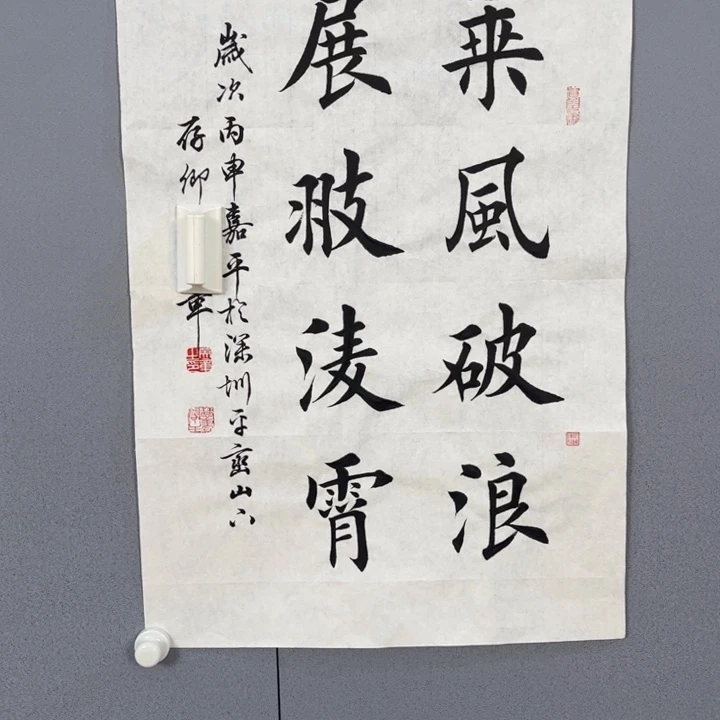 乘風破浪
展翅淩霄
歲次丙申嘉平於深圳平巒山下
存卿